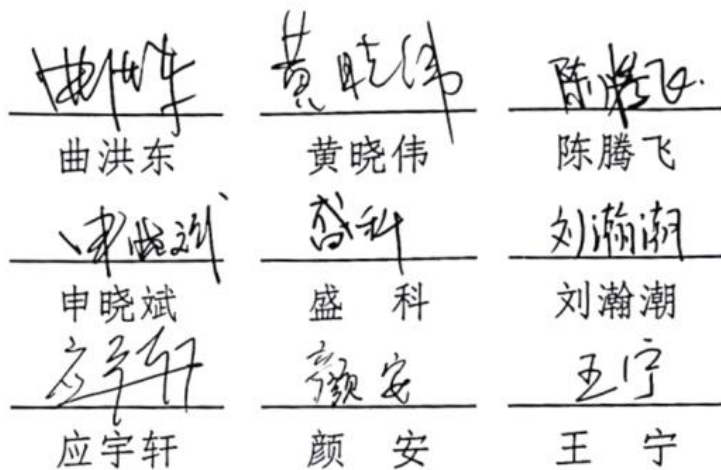 曲洪东 黄晓伟 陈腾飞
曲洪东 黄晓伟 陈腾飞
申晓斌 盛科 刘瀚潮
申晓斌 盛 科 刘瀚潮
应宇轩 颜安 王宁
应宇轩 颜 安 王 宁